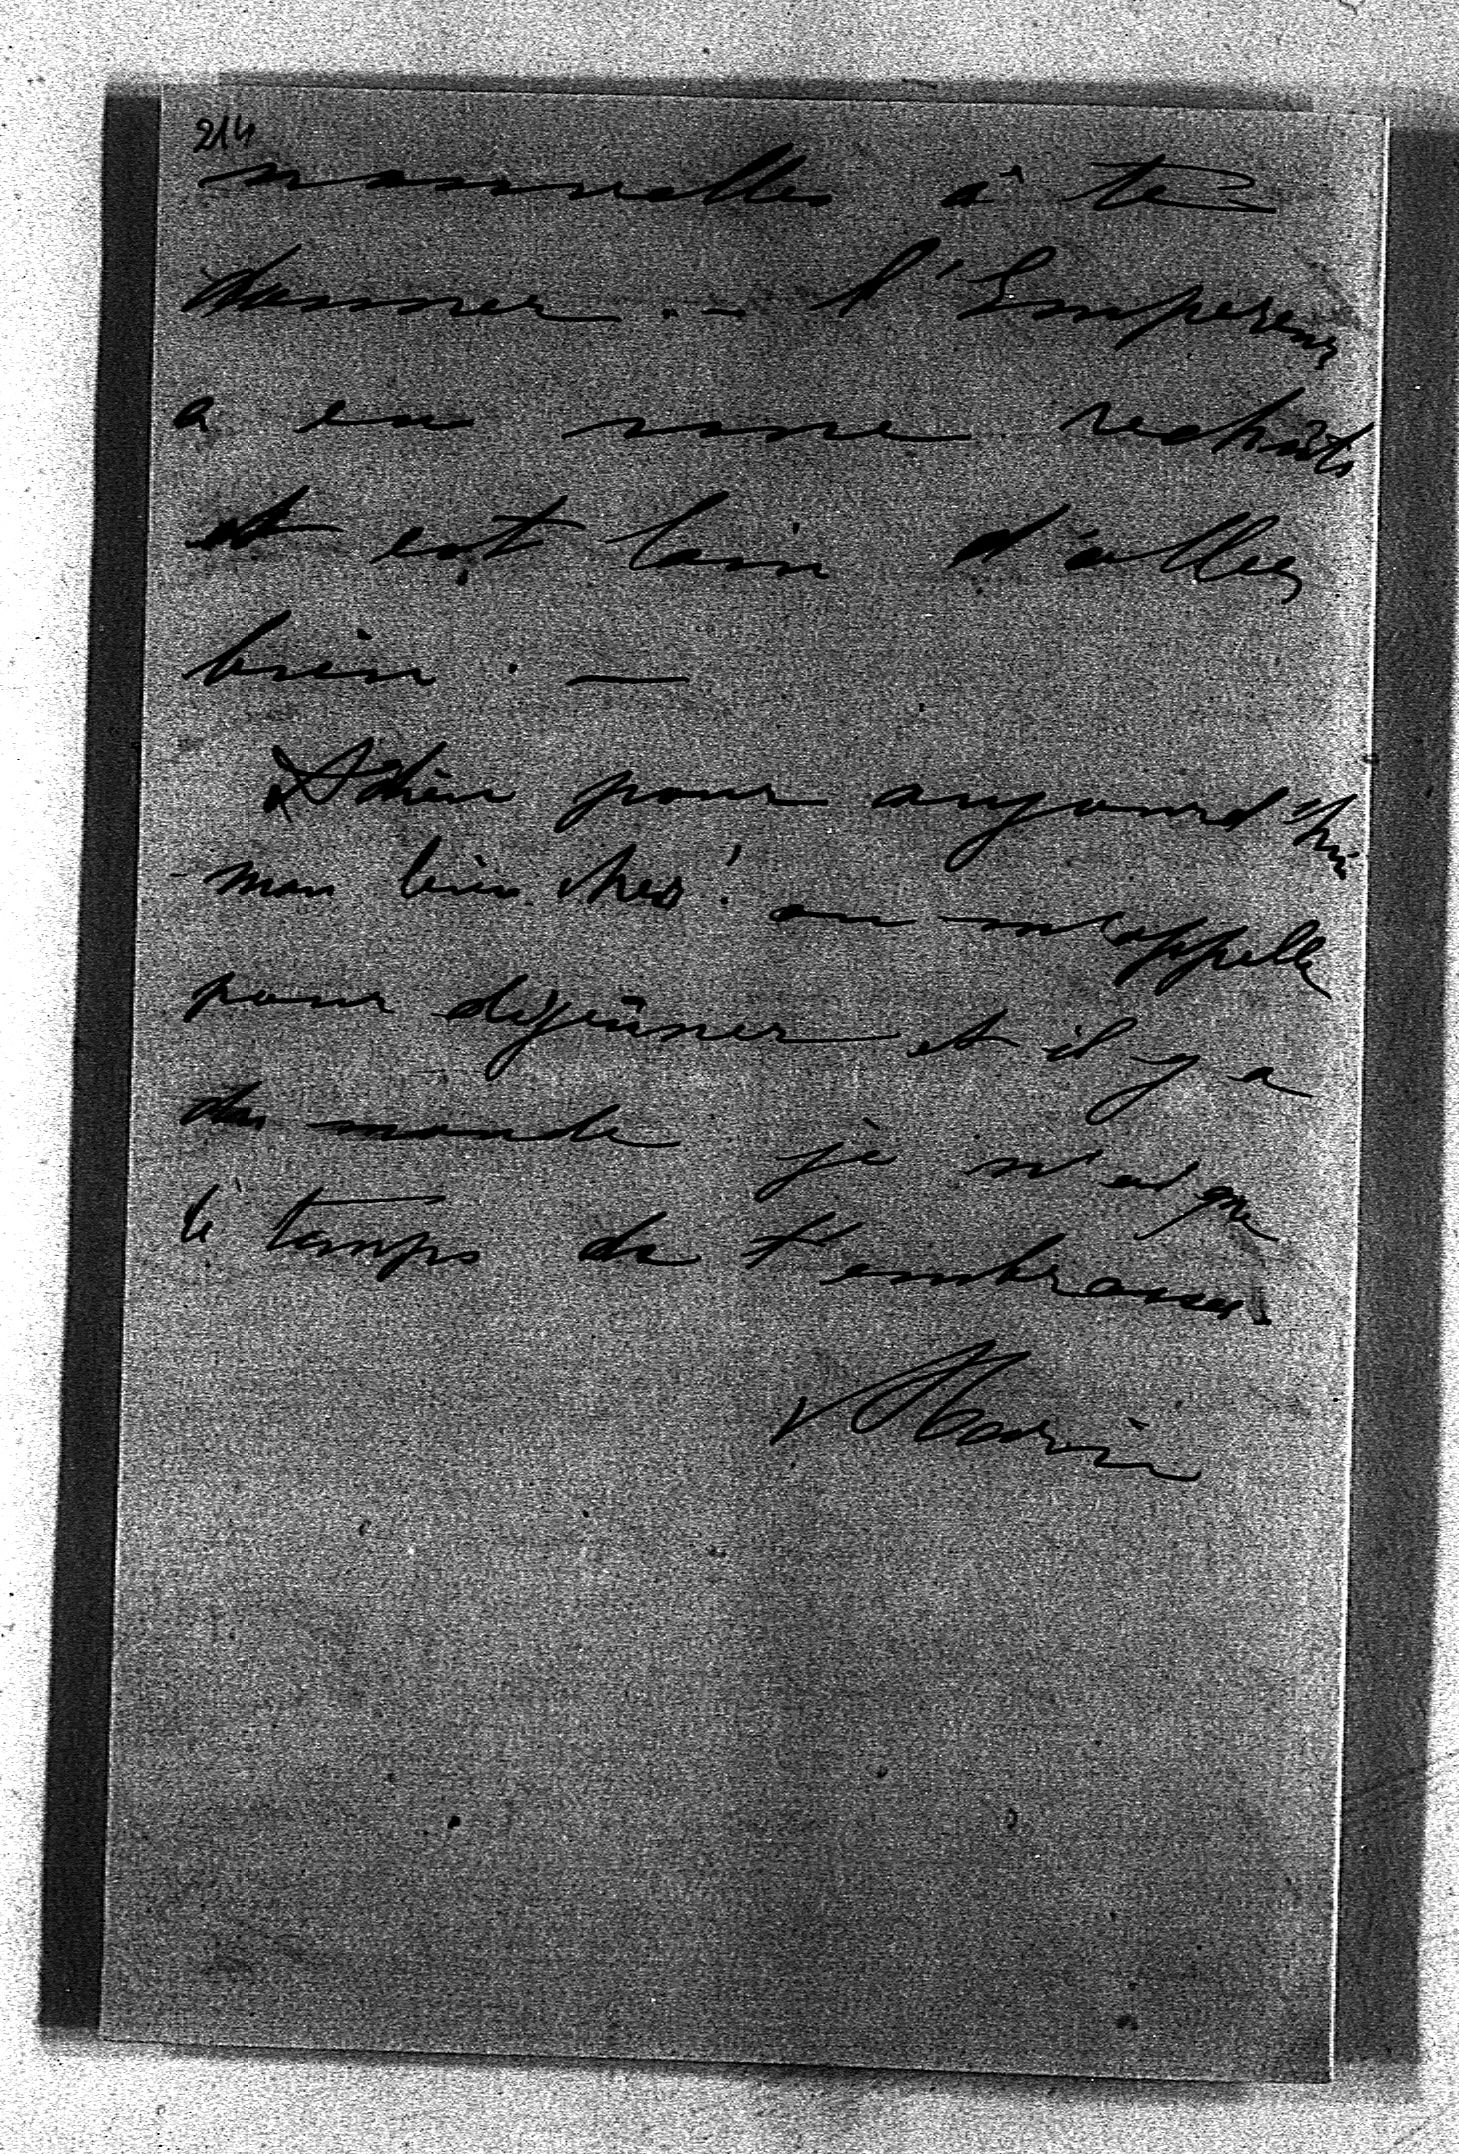 214
nouvelles à te
donner. — l'Empereur
a eu une rechûte
et est loin d'aller
bien. —
Adieu pour aujourd'hui
mon bien cher! on m'appelle
pour déjeûner et il y a
du monde je n'ai que
le temps de t'embrasser.
Marie